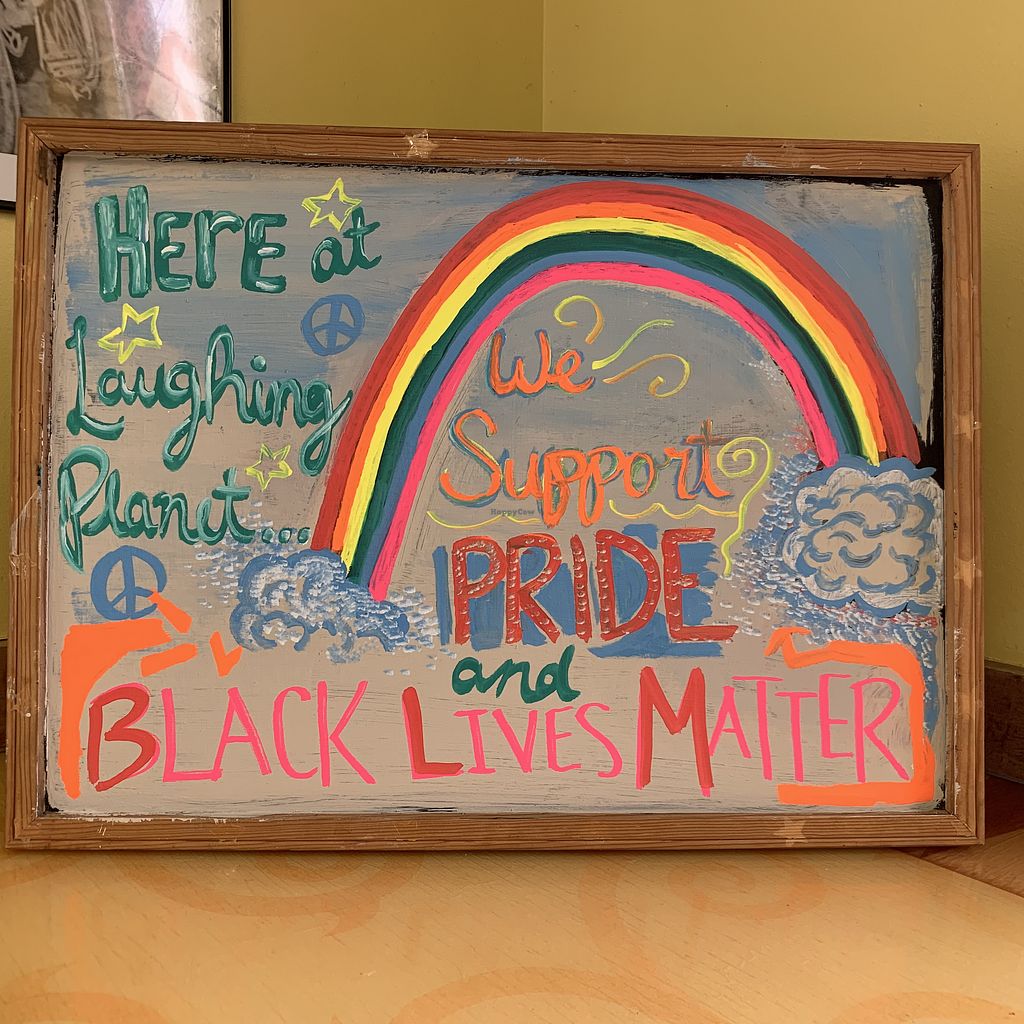 HerE at
Laughing
Planet...
We
Support
HappyCow
PRIDE
and
BLACK LIVES MATTER